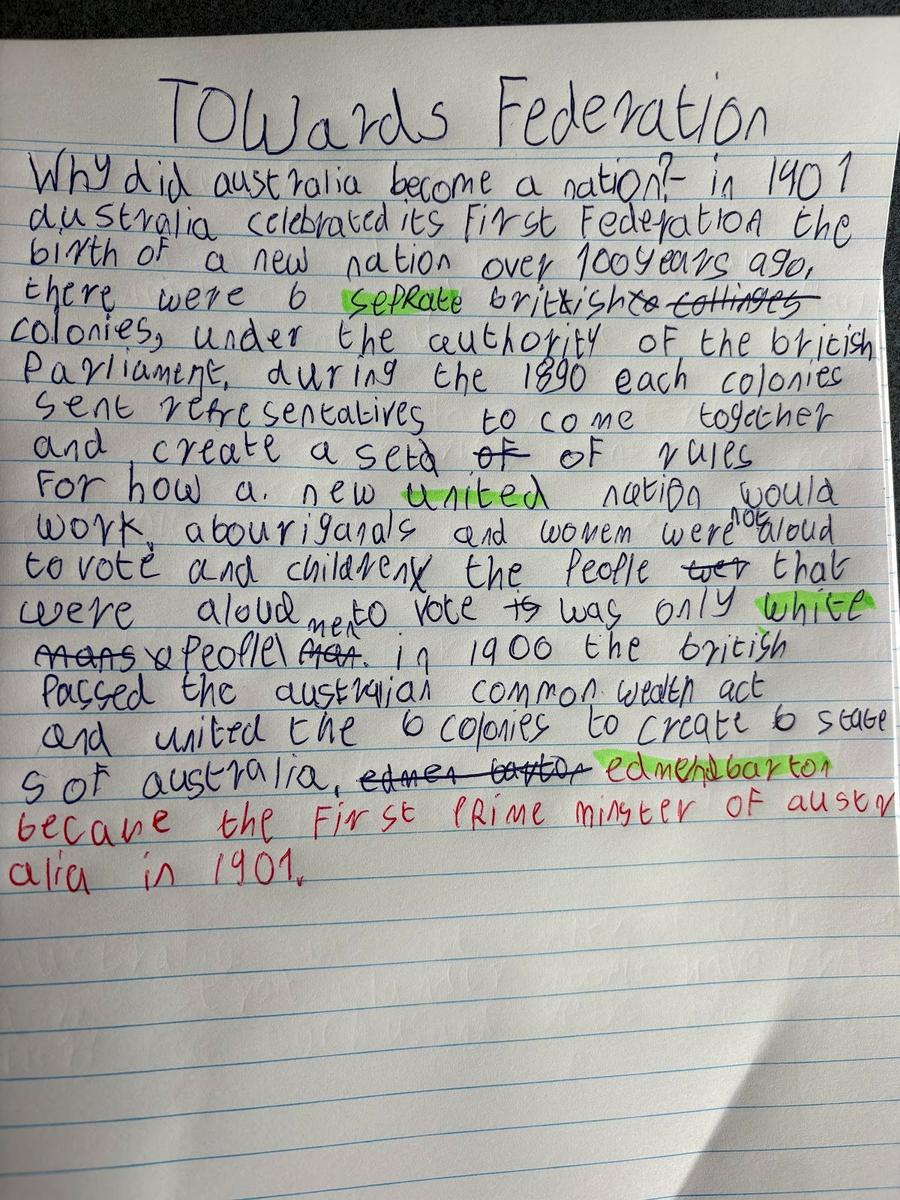 TOWards Federation
Why did australia become a nation?- in 1901
australia celebrated its First Federation the
birth of a new nation over 100years ago,
there were 6 seprate brittish to collinges
colonies, under the authority of the british
Parliament, during the 1890 each colonies
sent representatives to come together
and create a seta of of rules
For how a. new united nation would
work, abouriganals and women were not aloud
to vote and children the People wer that
were aloud men to vote is was only white
mans People man. in 1900 the british
Passed the australian common wealth act
and united the 6 colonies to create 6 state
s of australia, edmen barton edmend barton
became the First PRime minster of austr
alia in 1901.